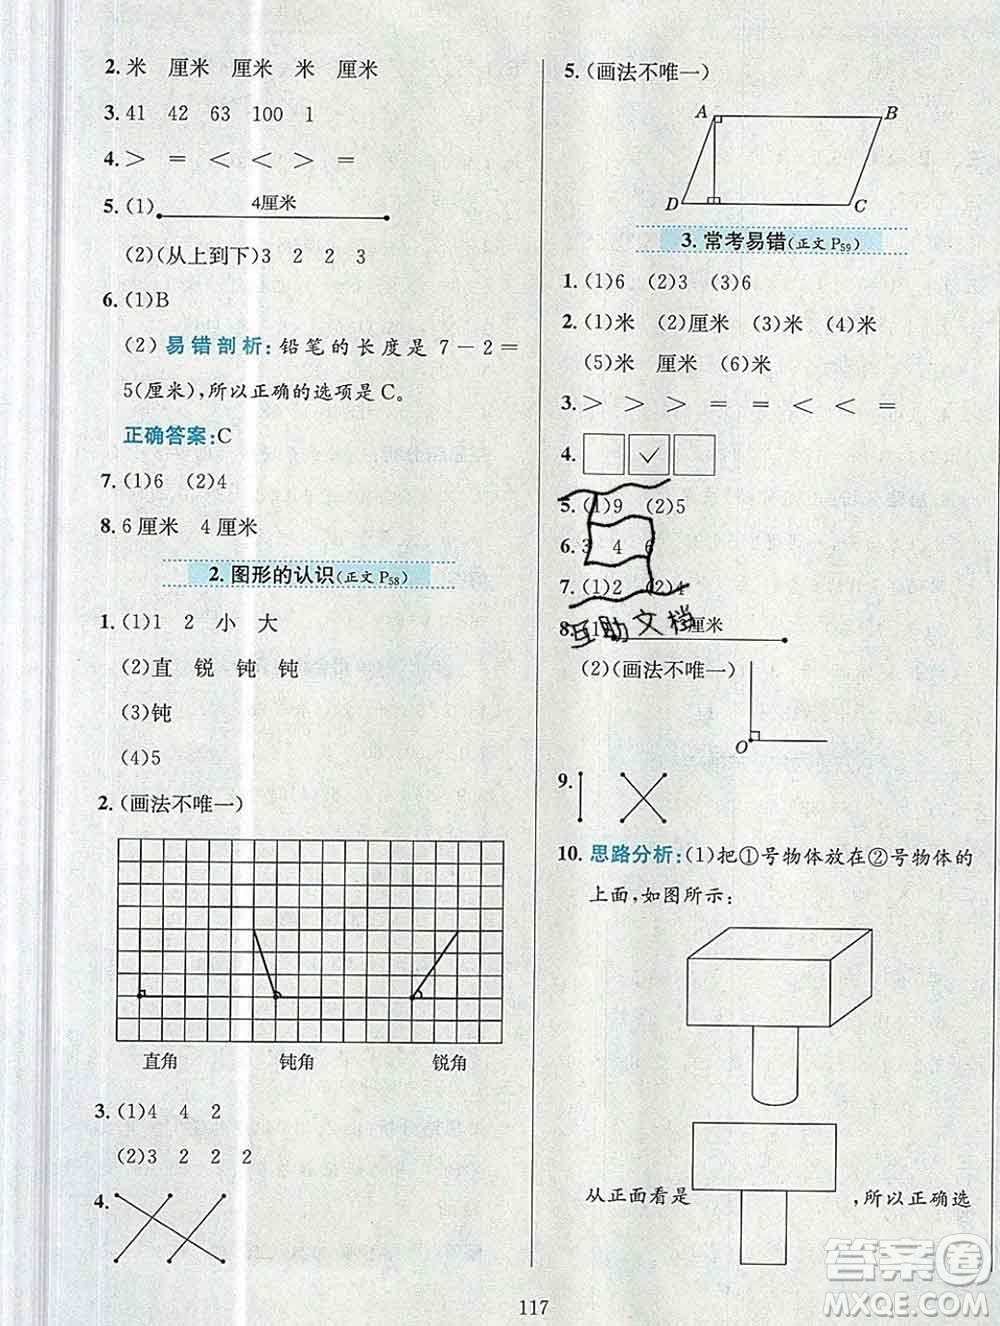 2. 米 厘米 厘米 米 厘米
3. 41 42 63 100 1
4. > = < < > =
5. (1) 4厘米
(2)(从上到下)3 2 2 3
6. (1)B
(2) 易错剖析:铅笔的长度是 7－2＝
5(厘米),所以正确的选项是 C。
正确答案:C
7. (1)6 (2)4
8. 6 厘米 4 厘米
2. 图形的认识(正文 P58)
1. (1)1 2 小 大
(2)直 锐 钝 钝
(3)钝
(4)5
2. (画法不唯一)
直角 钝角 锐角
3. (1)4 4 2
(2)3 2 2 2
4.
5. (画法不唯一)
A B
D C
3. 常考易错(正文 P59)
1. (1)6 (2)3 (3)6
2. (1)米 (2)厘米 (3)米 (4)厘米
(5)米 厘米 (6)米
3. > > > = < < =
4. ✓
5. (1)9 (2)5
6. 3 4 6
7. (1)2 (2)4
8. (1) 厘米
互助文档
(2)(画法不唯一)
O
9.
10. 思路分析:(1)把①号物体放在②号物体的
上面,如图所示:
从正面看是 ,所以正确选
117
答案圈
MXQE.COM